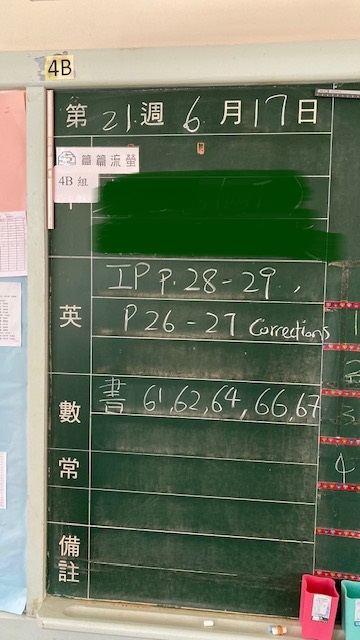 4B
第 21 週 6 月 17 日
篇篇流螢
4B 組
英
IP P. 28-29,
P 26-27 Corrections
數
書 61, 62, 64, 66, 67
常
4
備註